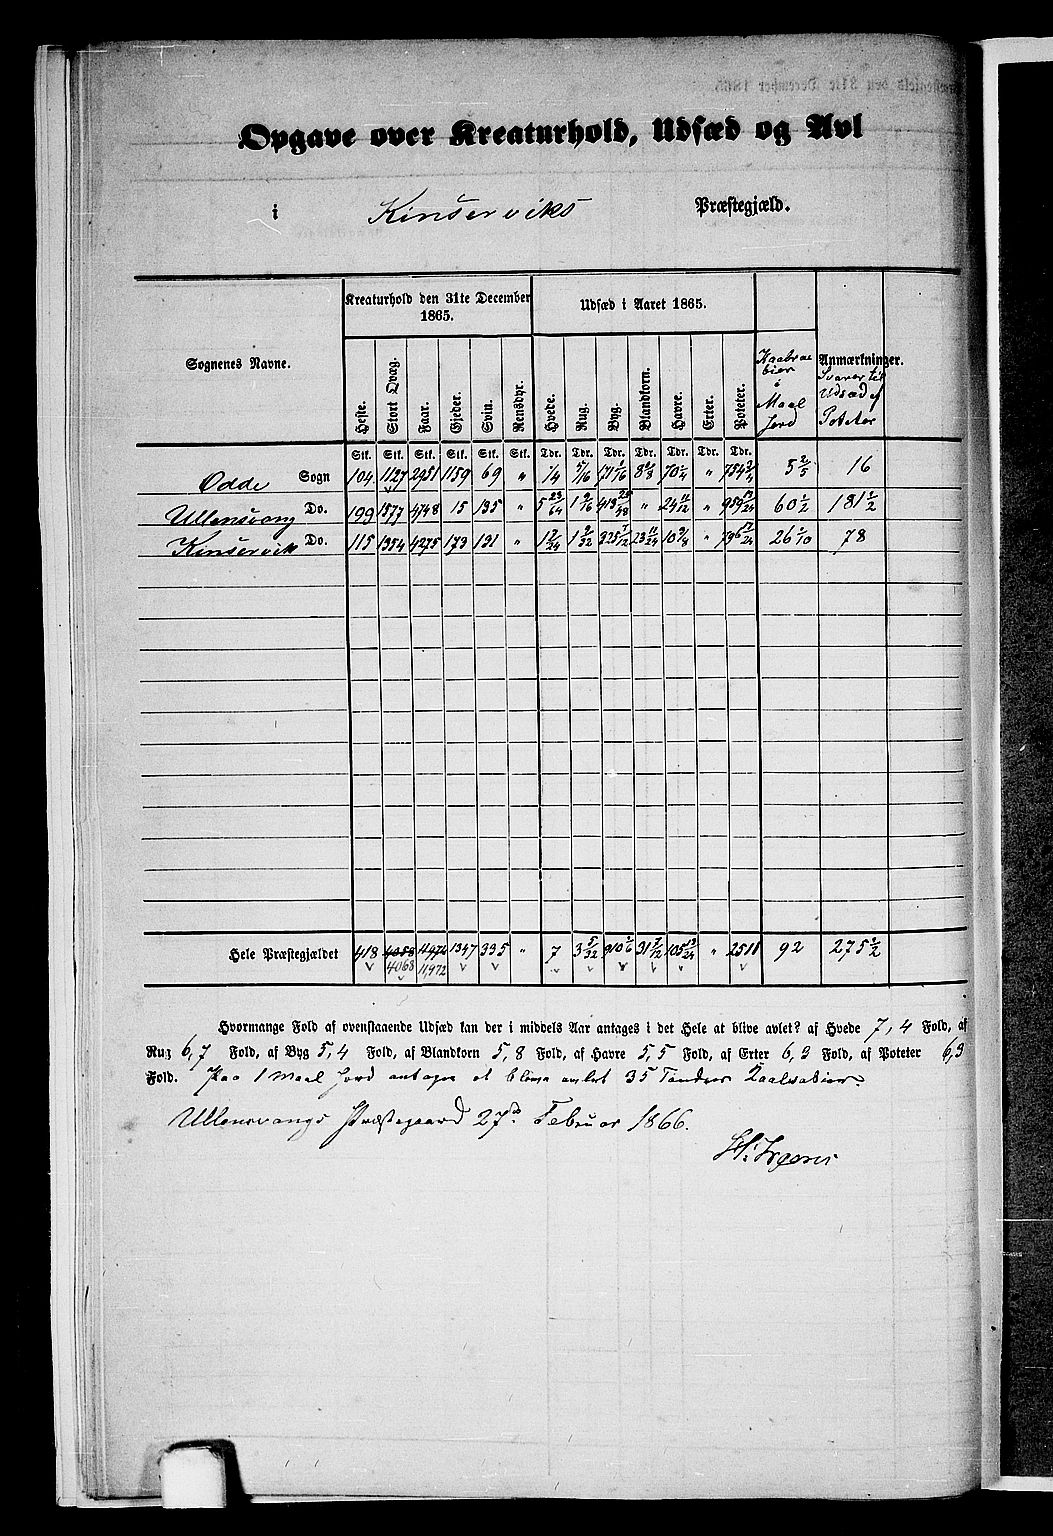 Opgave over Kreaturhold, Udsæd og Avl
i Kinserviks Præstegjæld.
Sognenes Navne.
Kreaturhold den 31te December 1865.
Udsæd i Aaret 1865.
Kaalrabier i Maal Jord
Anmærkninger.
Svarer til Udsæd af Poteter
Heste. Stort Qvæg. Faar. Gjeder. Svin. Rensdyr. Hvede. Rug. Byg. Blandkorn. Havre. Erter. Poteter.
Stk. Stk. Stk. Stk. Stk. Stk. Tdr. Tdr. Tdr. Tdr. Tdr. Tdr. Tdr.
Odde Sogn 104 1127 2951 1159 69 " 1/4 5/16 " 754 3/4 5 2/5 16
Ullensvang Do. 199 1577 4748 15 135 " 5 23/64 1 9/16 " 24 11/12 " 60 1/2 181 1/2
Kinservik Do. 115 1354 4275 173 131 " 325 7/12 23 11/24 " 78
Hele Præstegjældet 418 4058 4068 11,972 1347 335 " 7 3 5/32 " 2511 92 275 1/2
Hvormange Fold af ovenstaaende Udsæd kan der i middels Aar antages i det Hele at blive avlet? af Hvede 7,4 Fold, af
Rug 6,7 Fold, af Byg 5,4 Fold, af Blandkorn 5,8 Fold, af Havre 5,5 Fold, af Erter 6,3 Fold, af Poteter 6,3
Fold. Paa 1 Maal Jord antages at blive avlet 35 Tønder Kaalrabier.
Ullensvangs Præstegaard 27de Februar 1866.